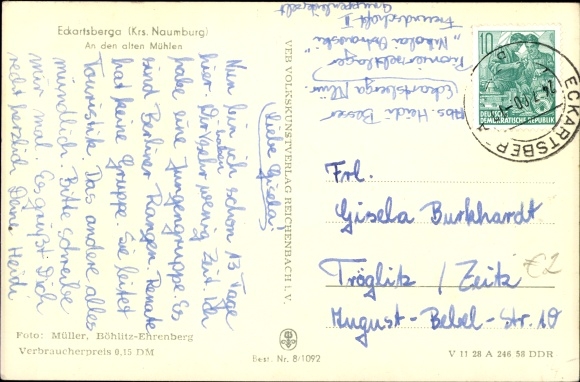 Eckartsberga (Krs. Naumburg)
An den alten Mühlen
Liebe Gisela!
Nun bin ich schon 13 Tage
hier. Wir haben sehr wenig Zeit. Ich
habe eine Jungengruppe. Es
sind Berliner Rangen. Renate
hat keine Gruppe. Sie leitet
Touristik. Das andere alles
mündlich. Bitte schreibe
mir mal. Es grüßt Dich
recht herzlich Deine Heidi
Foto: Müller, Böhlitz-Ehrenberg
Verbraucherpreis 0,15 DM
VEB VOLKSKUNSTVERLAG REICHENBACH i. V.
Best. Nr. 8/1092
Abs. Heidi Besser
Eckartsberga
Pionierzeltlager
"Nikolai Ostrowski"
Freundschaft II
Gruppenleiterzelt
10
DEUTSCHE
DEMOKRATISCHE REPUBLIK
ECKARTSBERGA
Frl.
Gisela Burkhardt
Tröglitz / Zeitz
August-Bebel-Str. 10
€2
V 11 28 A 246 58 DDR